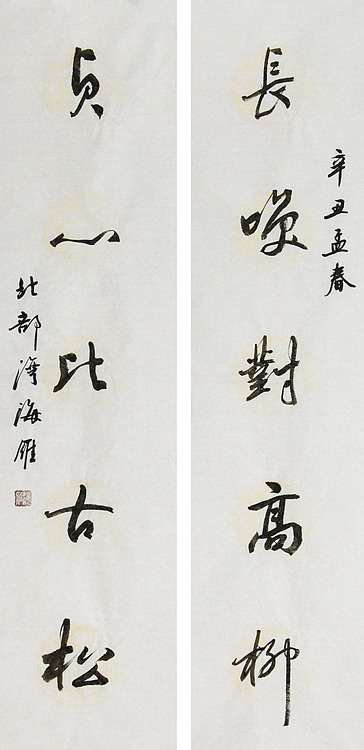 辛丑孟春
長嘆對高柳
貞心比古松
北部灣海雁